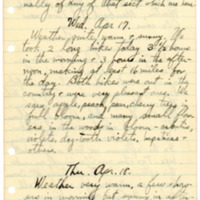 nally of any of that sect which we have
Wed. Apr 17.
Weather quite warm + sunny. We
took 2 long hikes today 3 1/2 hours
in the morning + 3 hours in the after-
noon, making at least 16 miles for
the day. Both hikes was out in the
country + were very pleasant ones. We
saw apple, peach, pear, cherry trees in
full bloom, and many small flow-
ers in the woods in bloom - arbutis,
violets, dog-tooth violets,
others.
Thu. Apr. 18.
Weather very warm, a few show-
ers in morning but sunny in after-